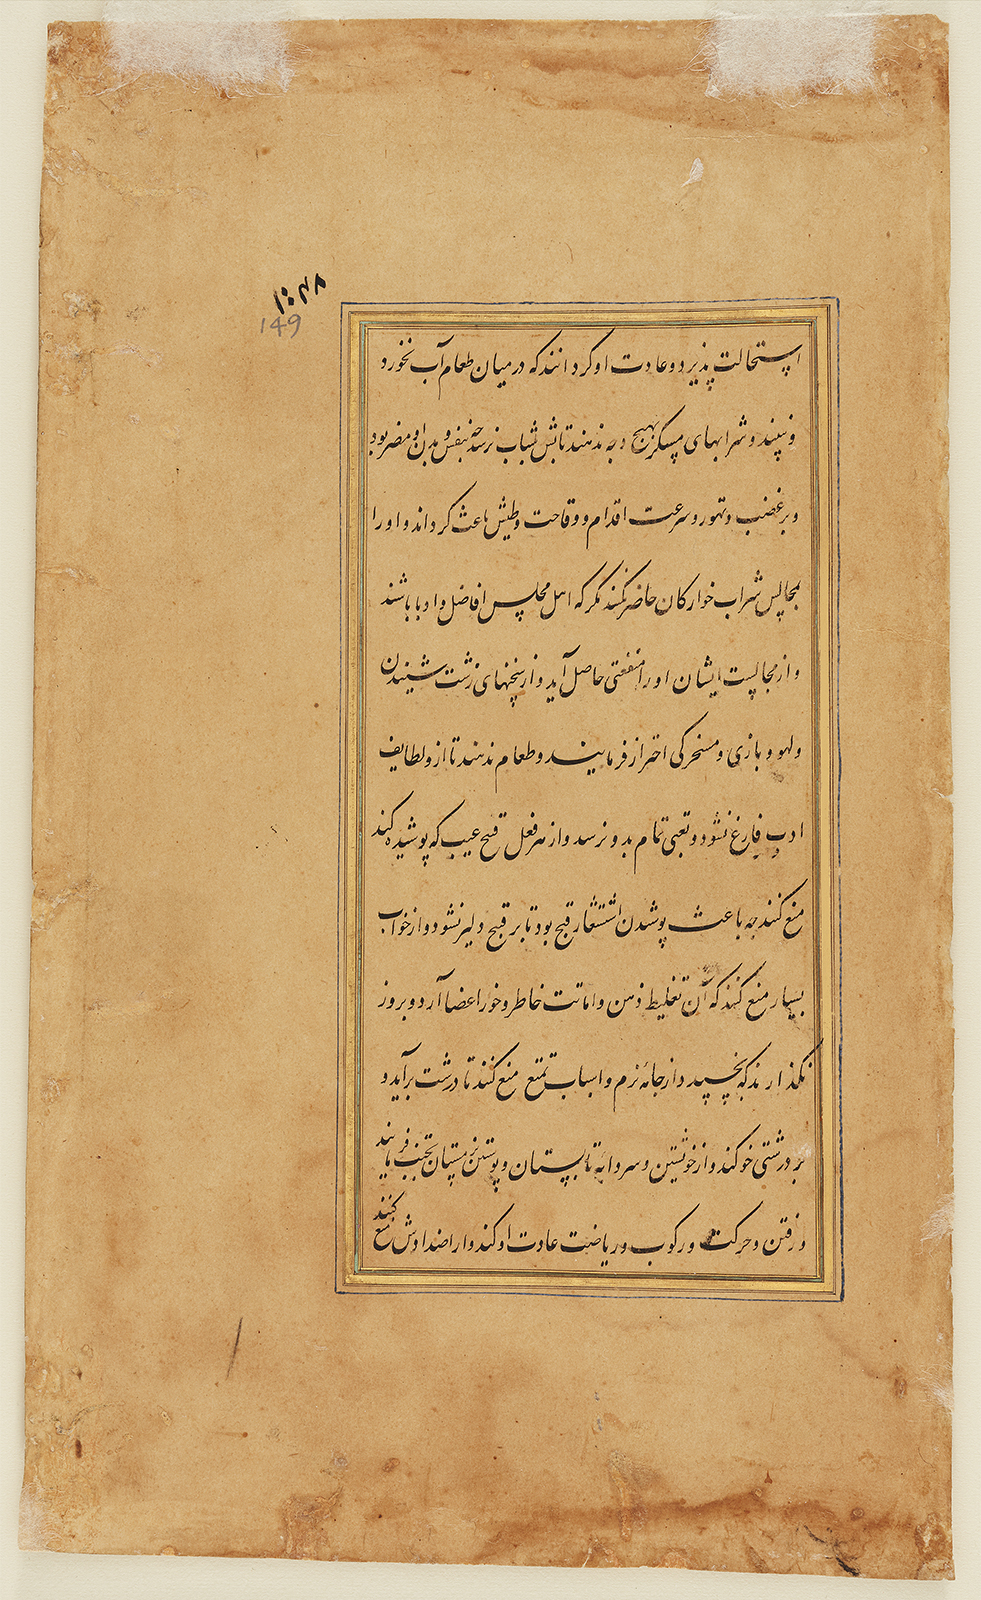 ۱۰۴۸
149
استحالت پذیرد و عادت او کردانند که در میان طعام آب نخورد
و نبیند و شرابهای مسکر بهیچ وجه ندهند تا بسن شباب نرسد چه بنفس و بدن او مضر بود
و بر غضب و تهور و سرعت اقدام و وقاحت و طیش باعث کرداند و اورا
بمجالس شراب خوارکان حاضر نکنند مکر که اهل مجلس افاضل و ادبا باشند
و از مجالست ایشان اورا منفعتی حاصل آید و از سخنهای زشت شنیدن
و لهو و بازی و مسخرکی احتراز فرمایند و طعام ندهند تا از وظایف
ادب فارغ نشود و تعبی تمام بدو نرسد و از هر فعل قبیح عیب که پوشیده کند
منع کنند چه باعث پوشدن استشعار قبح بود تا بر قبیح دلیر نشود و از خواب
بسیار منع کنند که آن تغلیظ ذهن و اماتت خاطر و خور اعضا آرد و بروز
نکذارند که بخسپد و از جامه نرم و اسباب تمتع منع کنند تا درشت برآید و
بر درشتی خو کند و از خویشتن و سردابه تابستان و پوستین زمستان تجنب فرمایند
و رفتن و حرکت و رکوب و ریاضت عادت او کند و از اضدادش منع کنند